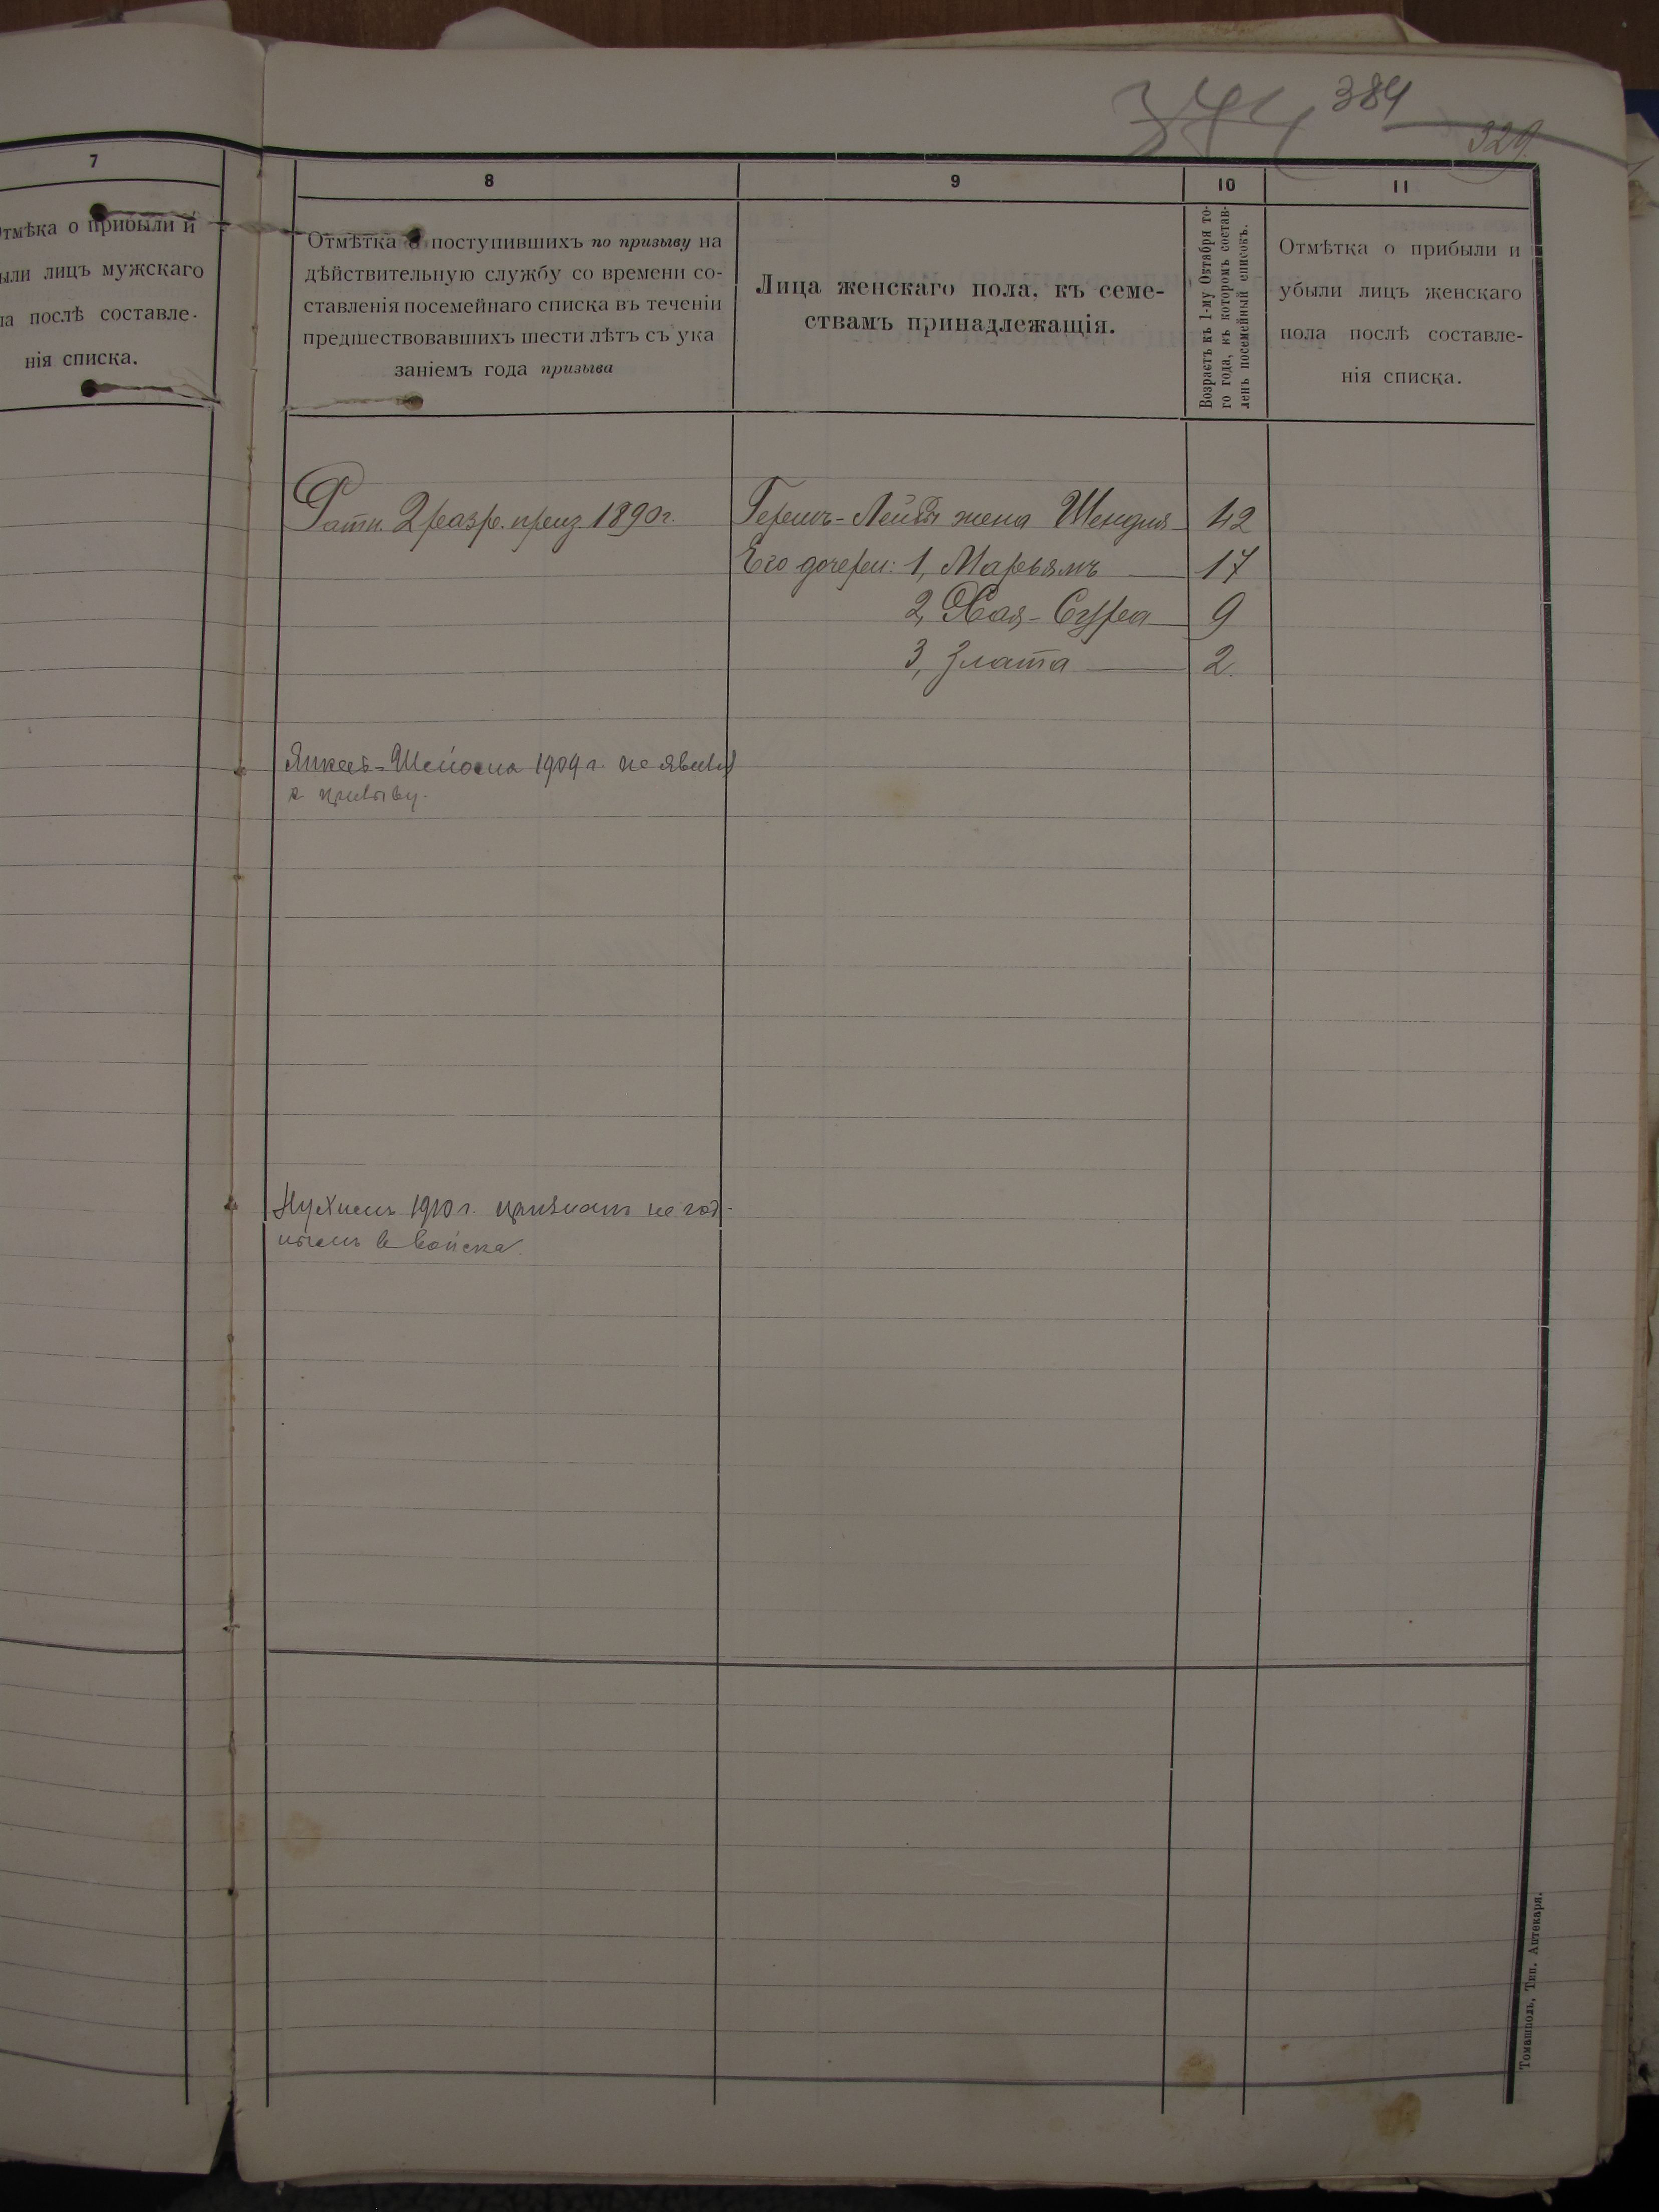 374 384
329.
7
Отмѣка о прибыли и
были лицъ мужскаго
ла послѣ составле-
нія списка.
8
Отмѣтка о поступившихъ по призыву на
дѣйствительную службу со времени со-
ставленія посемейнаго списка въ теченіи
предшествовавшихъ шести лѣтъ съ ука
заніемъ года призыва
9
Лица женскаго пола, къ семе-
ствамъ принадлежащія.
10
Возрастъ къ 1-му Октября то-
го года, къ которомъ состав-
ленъ посемейный списокъ.
11
Отмѣтка о прибыли и
убыли лицъ женскаго
пола послѣ составле-
нія списка.
Ратн. 2 разр. приз. 1890 г.
Гершъ-Лейбы жена Шендля 42
Его дочери: 1, Марьямъ 17
2, Хая-Сура 9
3, Злата 2.
1909 г. не явился
к призыву.
Нухимъ 1910 г. признанъ не год-
нымъ в войска.
Томашполь, Тип. Аптекаря.